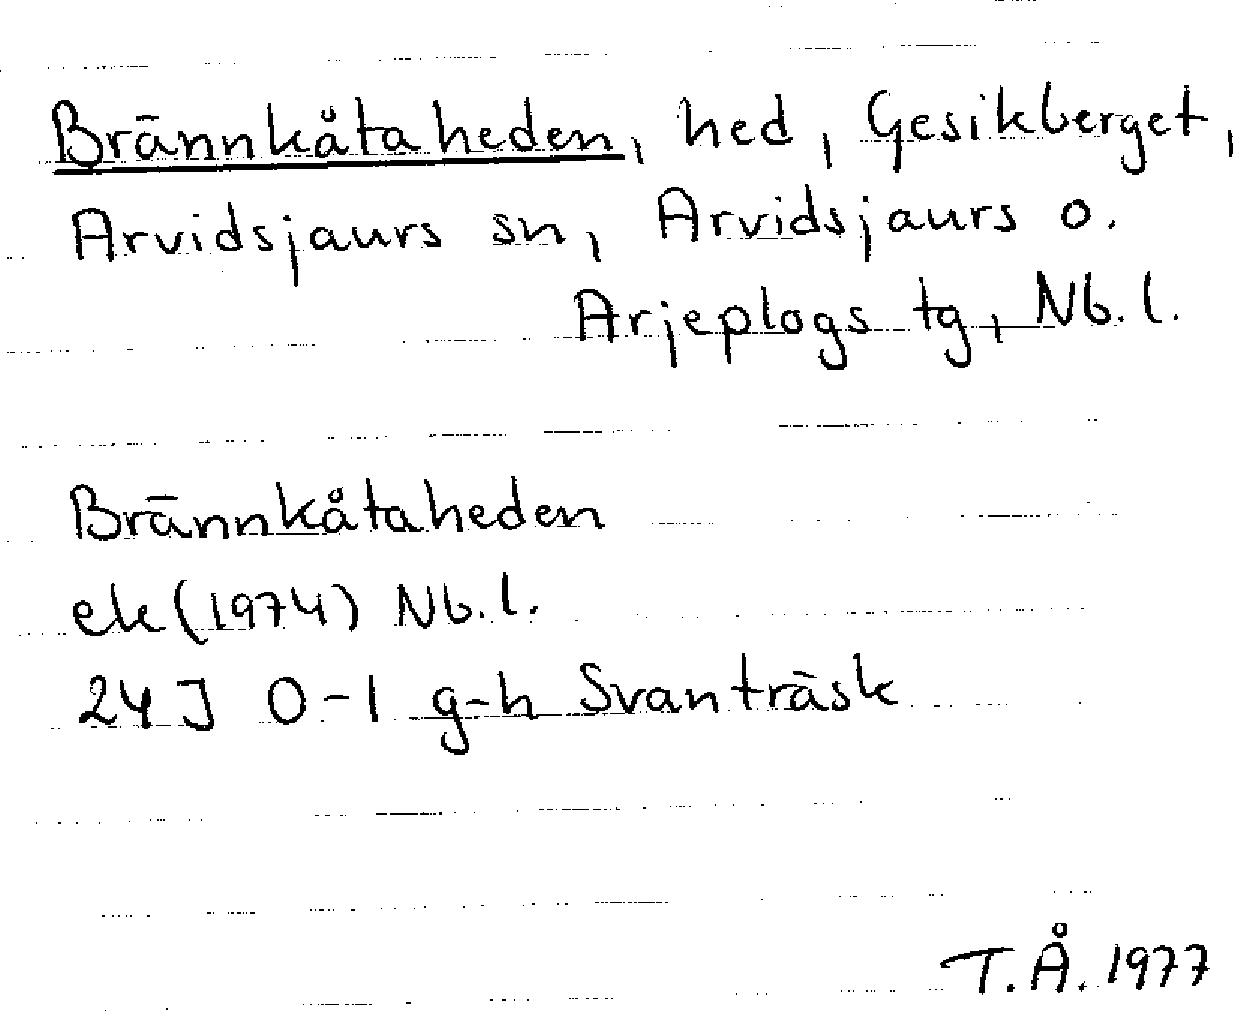 Brännkåtaheden, hed, Gesikberget,
Arvidsjaurs sn, Arvidsjaurs o.
Arjeplogs tg, Nb. l.
Brännkåtaheden
ek (1974) Nb. l.
24 J 0-1 g-h Svanträsk
T.Å. 1977